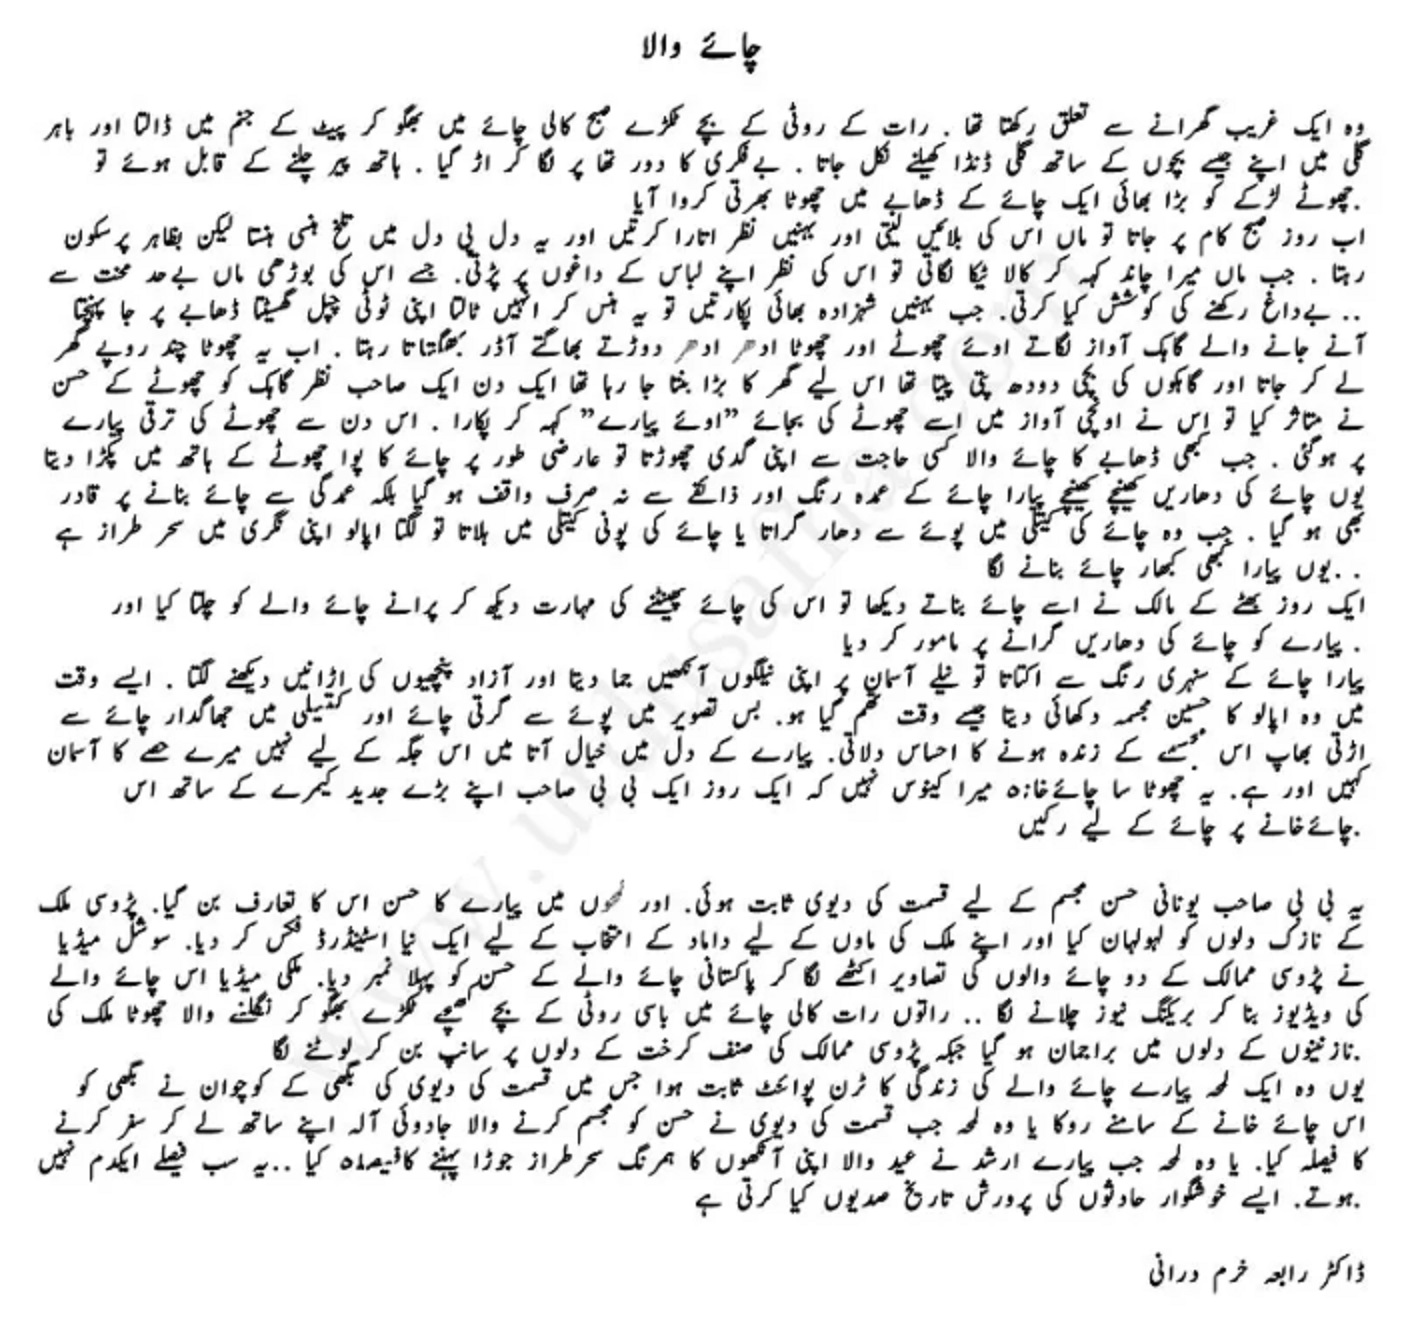 چائے والا
وہ ایک غریب گھرانے سے تعلق رکھتا تھا . رات کے روٹی کے بچے ٹکڑے صبح کالی چائے میں بھگو کر پیٹ کے جہنم میں ڈالتا اور باہر
گلی میں اپنے جیسے بچوں کے ساتھ گلی ڈنڈا کھیلنے نکل جاتا . بےفکری کا دور تھا پر لگا کر اڑ گیا . ہاتھ پیر چلنے کے قابل ہوئے تو
.چھوٹے لڑکے کو بڑا بھائی ایک چائے کے ڈھابے میں چھوٹا بھرتی کروا آیا
اب روز صبح کام پر جاتا تو ماں اس کی بلائیں لیتی اور بہنیں نظر اتارا کرتیں اور یہ دل ہی دل میں تلخ ہنسی ہنستا لیکن بظاہر پرسکون
رہتا . جب ماں میرا چاند کہہ کر کالا ٹیکا لگاتی تو اس کی نظر اپنے لباس کے داغوں پر پڑتی. جسے اس کی بوڑھی ماں بےحد محنت سے
.. بےداغ رکھنے کی کوشش کیا کرتی. جب بہنیں شہزادہ بھائی پکارتیں تو یہ ہنس کر انہیں ٹالتا اپنی ٹوٹی چپل گھسیٹتا ڈھابے پر جا پہنچتا
آنے جانے والے گاہک آواز لگاتے اوئے چھوٹے اور چھوٹا ادھر ادھر دوڑتے بھاگتے آڈر بھگتاتا رہتا . اب یہ چھوٹا چند روپے گھر
لے کر جاتا اور گاہکوں کی بچی دودھ پتی پیتا تھا اس لیے گھر کا بڑا بنتا جا رہا تھا ایک دن ایک صاحب نظر گاہک کو چھوٹے کے حسن
نے متاثر کیا تو اس نے اونچی آواز میں اسے چھوٹے کی بجائے ”اوئے پیارے” کہہ کر پکارا . اس دن سے چھوٹے کی ترقی پیارے
پر ہوگئی . جب کبھی ڈھابے کا چائے والا کسی حاجت سے اپنی گدی چھوڑتا تو عارضی طور پر چائے کا پوا چھوٹے کے ہاتھ میں پکڑا دیتا
یوں چائے کی دھاریں کھینچے کھینچے پیارا چائے کے عمدہ رنگ اور ذائقے سے نہ صرف واقف ہو گیا بلکہ عمدگی سے چائے بنانے پر قادر
بھی ہو گیا . جب وہ چائے کی کیتلی میں پوئے سے دھار گراتا یا چائے کی پونی کیتلی میں ہلاتا تو لگتا اپالو اپنی نگری میں سحر طراز ہے
. .یوں پیارا کبھی کبھار چائے بنانے لگا
ایک روز بھٹے کے مالک نے اسے چائے بناتے دیکھا تو اس کی چائے پھینٹنے کی مہارت دیکھ کر پرانے چائے والے کو چلتا کیا اور
. پیارے کو چائے کی دھاریں گرانے پر مامور کر دیا
پیارا چائے کے سنہری رنگ سے اکتاتا تو نیلے آسمان پر اپنی نیلگوں آنکھیں جما دیتا اور آزاد پنچھیوں کی اڑانیں دیکھنے لگتا . ایسے وقت
میں وہ اپالو کا حسین مجسمہ دکھائی دیتا جیسے وقت تھم گیا ہو. بس تصویر میں پوئے سے گرتی چائے اور کتیلی میں جھاگدار چائے سے
اڑتی بھاپ اس مجسمے کے زندہ ہونے کا احساس دلاتی. پیارے کے دل میں خیال آتا میں اس جگہ کے لیے نہیں میرے حصے کا آسمان
کہیں اور ہے. یہ چھوٹا سا چائےخانہ میرا کینوس نہیں کہ ایک روز ایک بی بی صاحب اپنے بڑے جدید کیمرے کے ساتھ اس
.چائےخانے پر چائے کے لیے رکیں
یہ بی بی صاحب یونانی حسن مجسم کے لیے قسمت کی دیوی ثابت ہوئی. اور لمحوں میں پیارے کا حسن اس کا تعارف بن گیا. پڑوسی ملک
کے نازک دلوں کو لہولہان کیا اور اپنے ملک کی ماوں کے لیے داباد کے انتخاب کے لیے ایک نیا اسٹینڈرڈ فکس کر دیا. سوشل میڈیا
نے پڑوسی ممالک کے دو چائے والوں کی تصاویر اکٹھے لگا کر پاکستانی چائے والے کے حسن کو پہلا نمبر دیا. ملکی میڈیا اس چائے والے
کی ویڈیوز بنا کر بریکنگ نیوز چلانے لگا .. راتوں رات کالی چائے میں باسی روٹی کے بچے کھچے ٹکڑے بھگو کر نگلنے والا چھوٹا ملک کی
.نازنینوں کے دلوں میں براجمان ہو گیا جبکہ پڑوسی ممالک کی صنف کرخت کے دلوں پر سانپ بن کر لوٹنے لگا
یوں وہ ایک لمحہ پیارے چائے والے کی زندگی کا ٹرن پوائنٹ ثابت ہوا جس میں قسمت کی دیوی کی بگھی کے کوچوان نے بگھی کو
اس چائے خانے کے سامنے روکا یا وہ لمحہ جب قسمت کی دیوی نے حسن کو مجسم کرنے والا جادوئی آلہ اپنے ساتھ لے کر سفر کرنے
کا فیصلہ کیا. یا وہ لمحہ جب پیارے ارشد نے عید والا اپنی آنکھوں کا ہمرنگ سحرطراز جوڑا پہننے کافیصلہ کیا ..یہ سب فیصلے ایکدم نہیں
.ہوتے. ایسے خوشگوار حادثوں کی پرورش تاریخ صدیوں کیا کرتی ہے
ڈاکٹر رابعہ خرم درانی